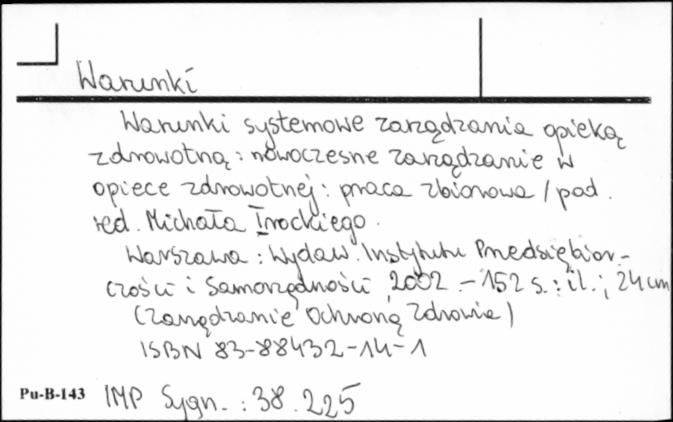 Warunki
Warunki systemowe zarządzania opieką
zdrowotną : nowoczesne zarządzanie w
opiece zdrowotnej : praca zbiorowa / pod.
red. Michała Trockiego.
Warszawa : Wydaw. Instytutu Przedsiębior-
czości i Samorządności, 2002. - 152 s. : il. ; 24 cm
(Zarządzanie Ochroną Zdrowia)
ISBN 83-88432-14-1
Pu-B-143 IMP Sygn. : 38.225